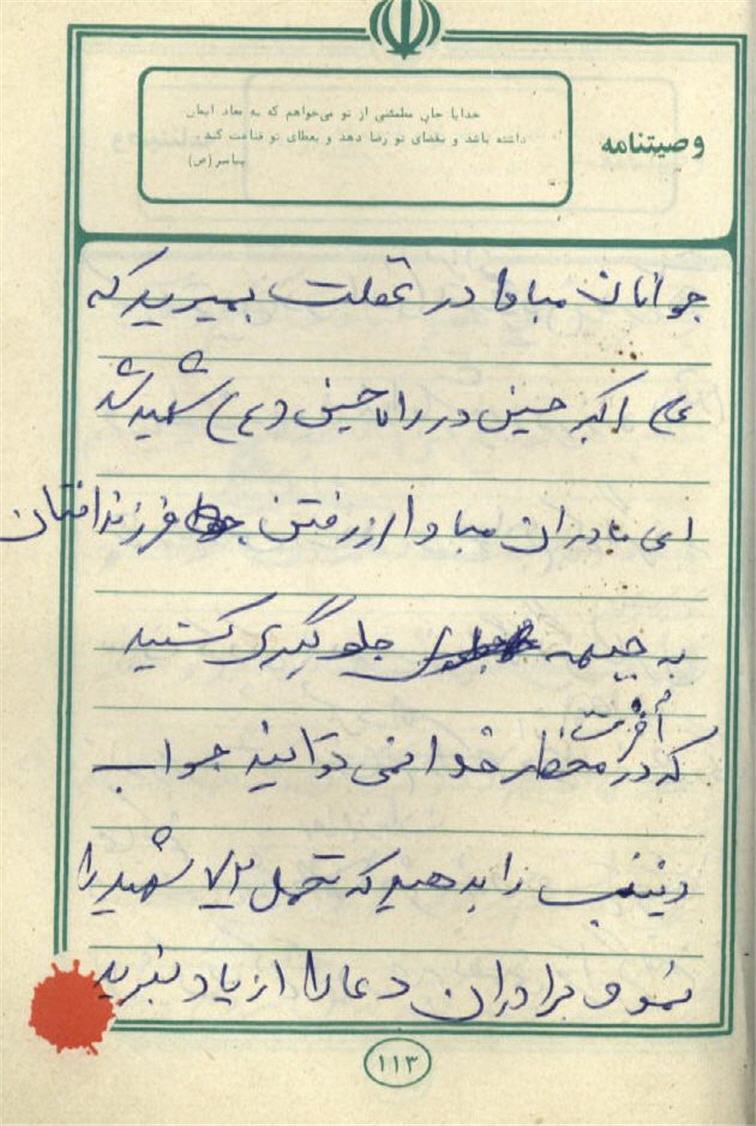 وصیتنامه
خدایا جانی مطمئنی از تو می‌خواهم که به معاد ایمان
داشته باشد و بقضای تو رضا دهد و بعطای تو قناعت کند
پیامبر (ص)
جوانان مبادا در غفلت بمیرید که
علی اکبر حسین در راه حسین (ع) شهید شد
ای مادران مبادا از رفتن فرزندانتان
به جبهه جلوگیری کنید
که در آخرت محضر خدا نمی توانید جواب
زینب را بدهید که تحمل ۷۲ شهید را
نمود برادران دعا را از یاد نبرید
۱۱۳